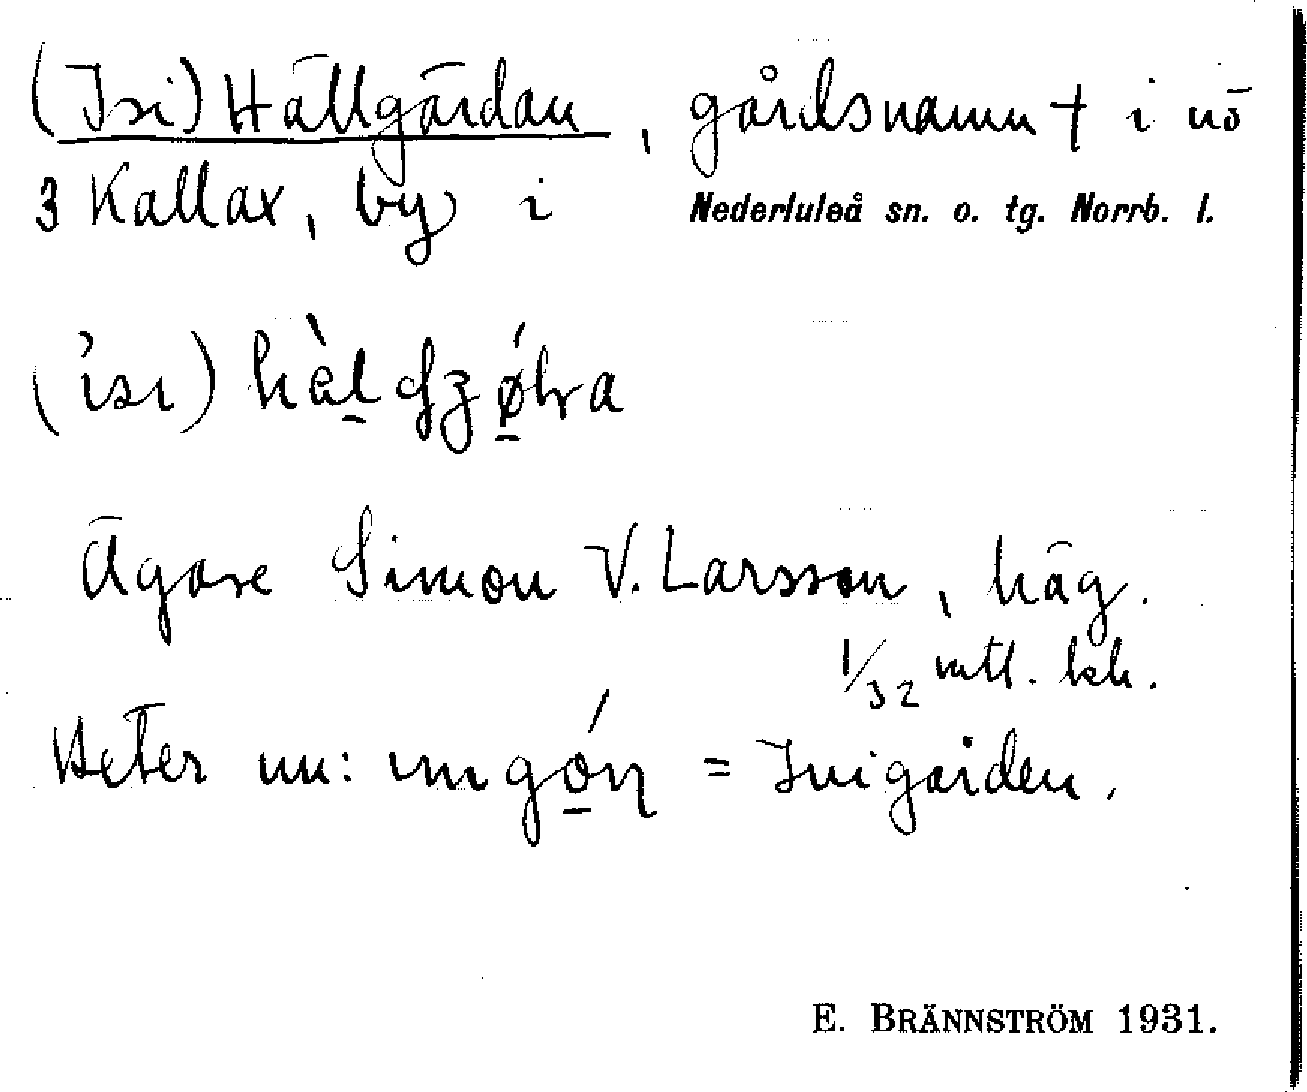 (Isi) Hällgärdan, gårdsnamn † i nö
3 Kallax, by i Nederluleå sn. o. tg. Norrb. l.
(isı)
Ägare Simon V. Larsson, häg.
1/32 mtl. kh.
Heter nu: = Inigården.
E. BRÄNNSTRÖM 1931.